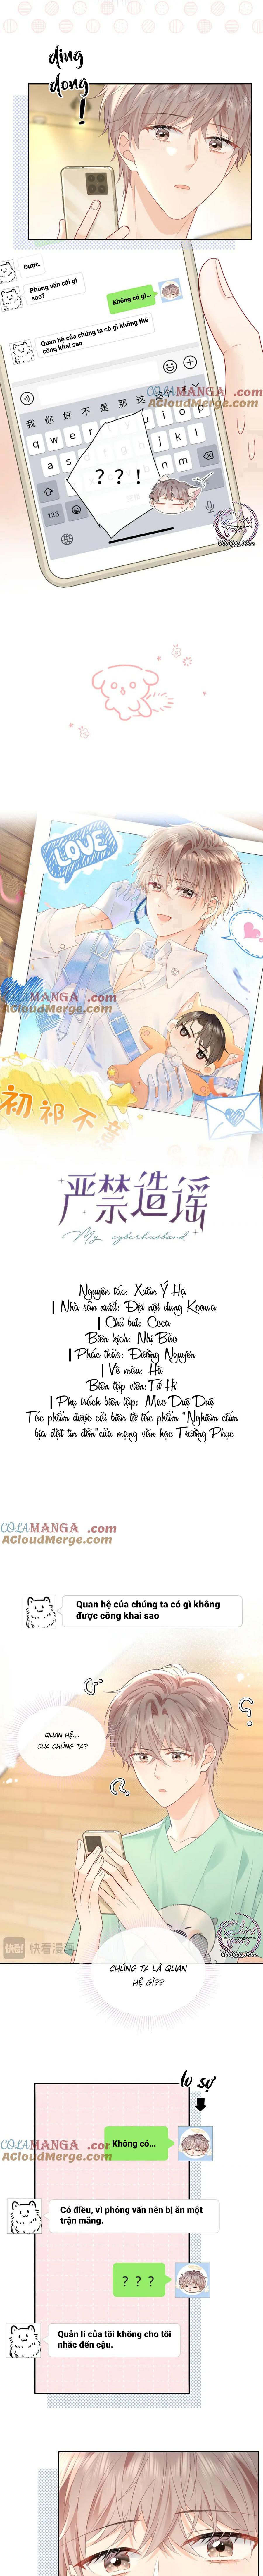 ding
dong
!
Được.
Phỏng vấn cái gì
sao?
Không có gì...
Quan hệ của chúng ta có gì không thể
công khai sao
我 你 好 不 是 那 这
q w e r
u i o p
a s
j k l
n m
123
？？！
COLAMANGA .com
AColamanga.com
LOVE
COLAMANGA .com
AColamanga.com
初祁不
严禁造谣
My cyberhusband
Nguyên tác: Xuân Ý Hạ
| Nhà sản xuất: Đội nội dung Koowa
| Chủ bút: Coca
Biên kịch: Nhị Bảo
| Phác thảo: Đường Nguyên
| Vẽ màu: Hà
Biên tập viên: Tứ Hỉ
| Phụ trách biên tập: Mao Duệ Duệ
Tác phẩm được cải biên từ tác phẩm "Nghiêm cấm
bịa đặt tin đồn" của mạng văn học Trường Phục
COLAMANGA .com
AColamanga.com
Quan hệ của chúng ta có gì không
được công khai sao
QUAN HỆ...
CỦA CHÚNG TA?
快看漫画
CHÚNG TA LÀ QUAN
HỆ GÌ??
lo sợ
COLAMANGA
AColamanga.com
Không có...
Có điều, vì phỏng vấn nên bị ăn một
trận mắng.
？？？
Quản lí của tôi không cho tôi
nhắc đến cậu.